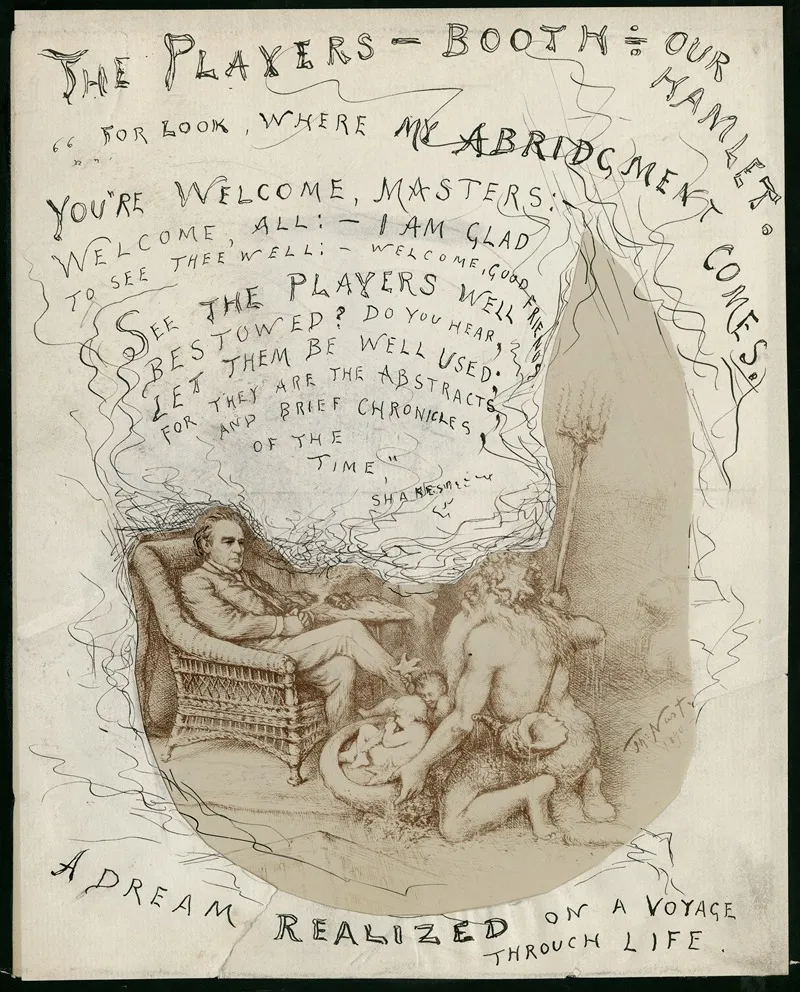 THE PLAYERS — BOOTH ÷ OUR HAMLET.
"FOR LOOK, WHERE MY ABRIDGMENT COMES.
YOU'RE WELCOME, MASTERS:-
WELCOME, ALL: — I AM GLAD
TO SEE THEE WELL: — WELCOME, GOOD FRIENDS
SEE THE PLAYERS WELL
BESTOWED? DO YOU HEAR,
LET THEM BE WELL USED;
FOR THEY ARE THE ABSTRACTS,
AND BRIEF CHRONICLES,
OF THE
TIME,"
SHAKESPEARE
Th: Nast
A DREAM REALIZED ON A VOYAGE
THROUGH LIFE.